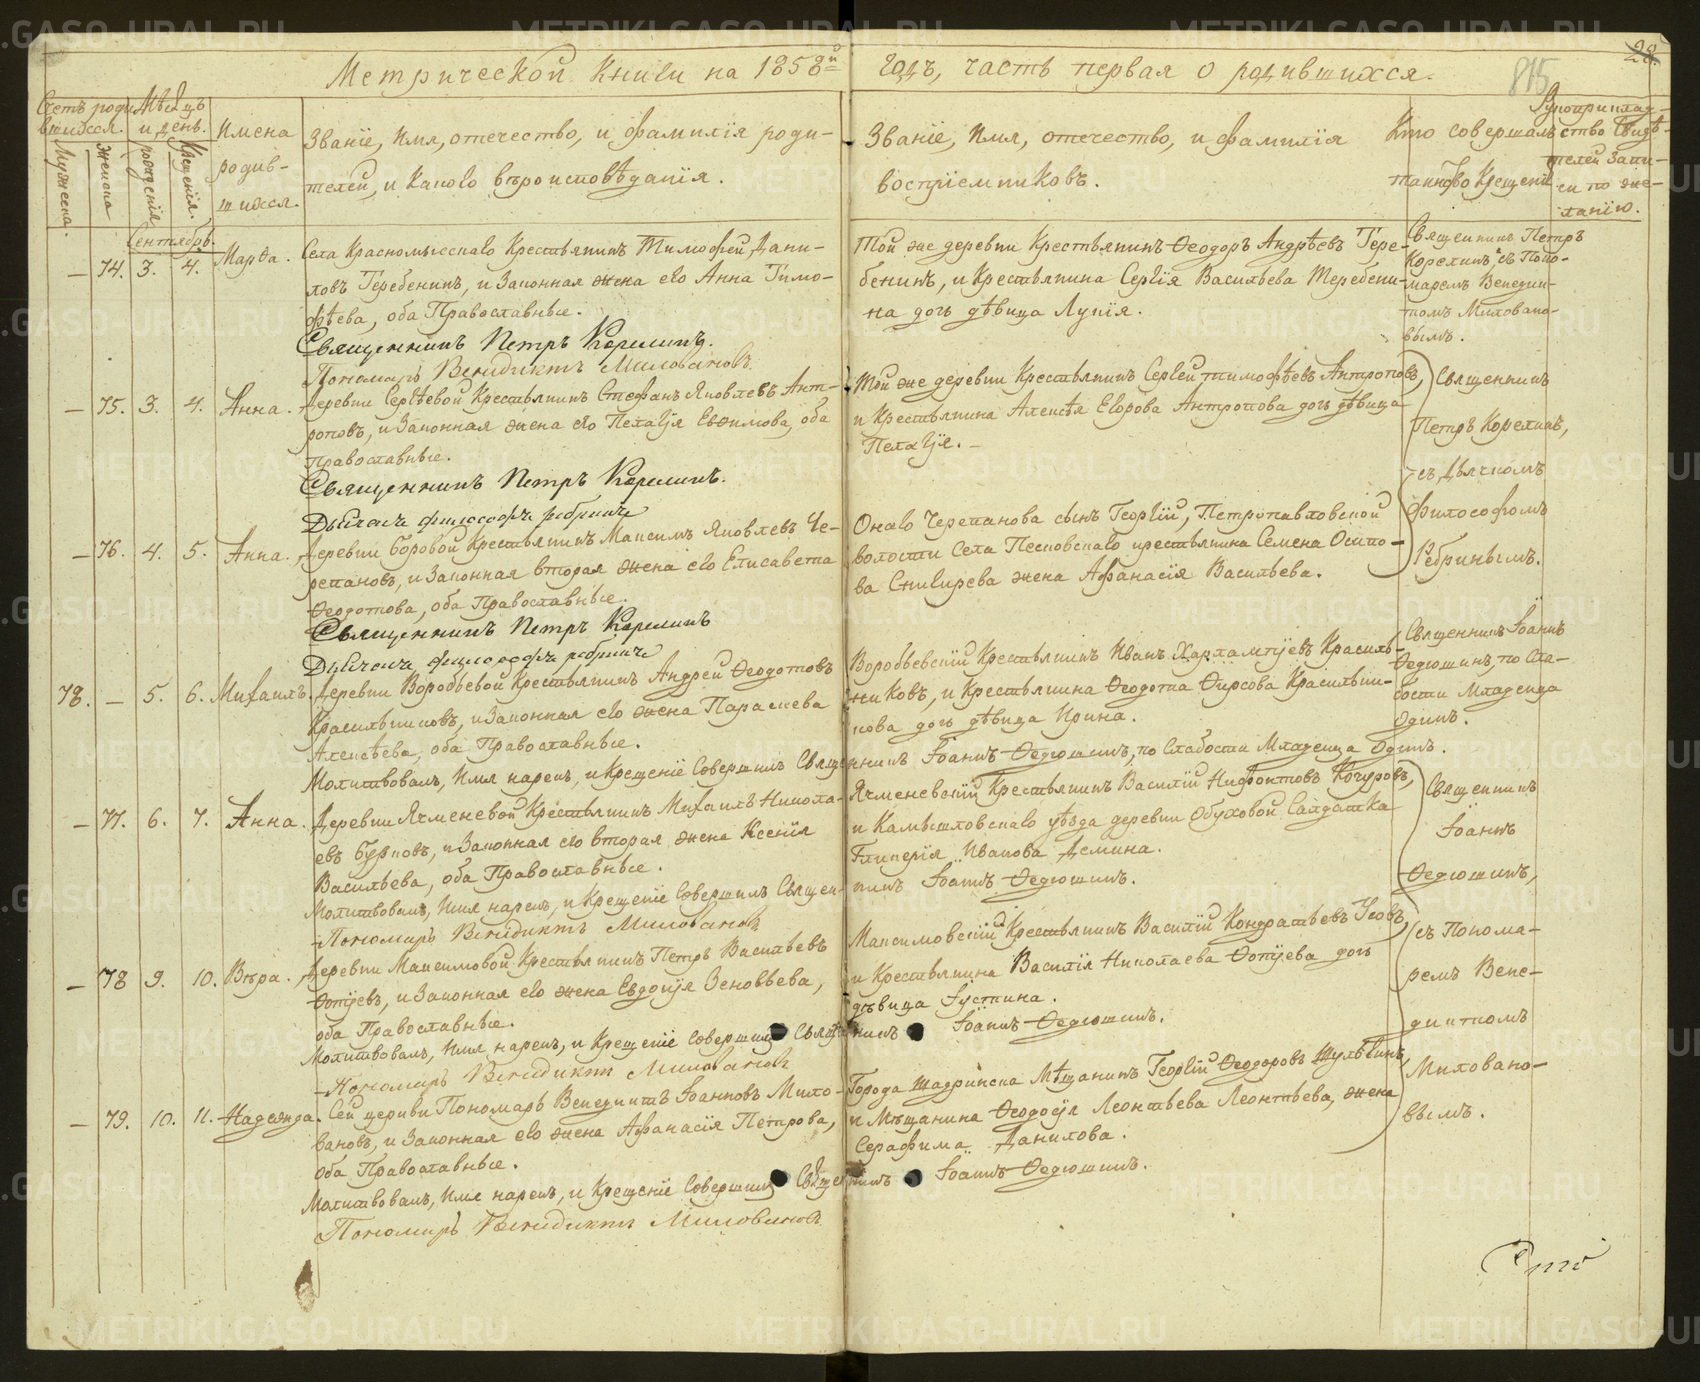 Метрической книги на 1858й годъ, часть первая о родившихся.
815
28.
Счетъ роди-
вшихся.
Мужеска.
Женска
Мѣсяцъ
и день.
рожденія
Крещенія.
Имена
родив-
шихся.
Званіе, Имя, отечество, и фамилія роди-
телей, и какого вѣроисповѣданія.
Званіе, Имя, отечество, и фамилія
воспріемниковъ.
Кто совершалъ
таинство Крещенія
Рукоприклад-
ство свидѣ-
телей запи-
си по же-
ланію.
Сентябрь.
— 74. 3. 4. Марѳа.
Села Красномысскаго Крестьянинъ Тимофей Дани-
ловъ Теребенинъ, и Законная жена его Анна Тимо-
фѣева, оба Православные.
Священникъ Петръ Корелинъ.
Пономарь Венидиктъ Миловановъ
Той же деревни Крестьянинъ Ѳеодоръ Андрѣевъ Тере-
бенинъ, и Крестьянина Сергія Васильева Теребени-
на дочь дѣвица Лукія.
Священникъ Петръ
Корелинъ съ Поно-
маремъ Венедик-
томъ Миловано-
вымъ.
— 75. 3. 4. Анна.
Деревни Сергѣевой Крестьянинъ Стефанъ Яковлевъ Ант-
роповъ, и Законная жена его Пелагія Евѳимова, оба
Православные.
Священникъ Петръ Корелинъ.
Дьячокъ философъ ребринъ
Той же деревни Крестьянинъ Сергей Тимофѣевъ Антроповъ,
и Крестьянина Алексѣя Егорова Антропова дочь дѣвица
Пелагія. —
Священникъ
Петръ Корелинъ,
съ Дьячкомъ
Философомъ
Ребринымъ.
— 76. 4. 5. Анна.
Деревни Боровой Крестьянинъ Максимъ Яковлевъ Че-
репановъ, и Законная вторая жена его Елисавета
Ѳеодотова, оба Православные.
Священникъ Петръ Корелинъ
Дьячокъ философъ ребринъ
Онаго Черепанова сынъ Георгій, Петропавловской
волости Села Песковскаго крестьянина Семена Осипо-
ва Снигирева жена Афанасія Васильева.
78. — 5. 6. Михаилъ.
Деревни Воробьевой Крестьянинъ Андрей Ѳеодотовъ
Красильниковъ, и Законная его жена Параскева
Алексѣева, оба Православные.
Молитвовалъ, Имя нарекъ, и Крещеніе Совершилъ Священникъ Іоаннъ Ѳедюшинъ, по Слабости Младенца Одинъ.
Воробьевскій Крестьянинъ Иванъ Харлампіевъ Красиль-
никовъ, и Крестьянина Ѳеодота Ѳирсова Красильни-
кова дочь дѣвица Ирина.
Священникъ Іоаннъ
Ѳедюшинъ, по Сла-
бости Младенца
Одинъ.
— 77. 6. 7. Анна.
Деревни Ячменевой Крестьянинъ Михаилъ Никола-
евъ Бурковъ, и Законная его вторая жена Ксенія
Васильева, оба Православные.
Молитвовалъ, Имя нарекъ, и Крещеніе Совершилъ Священникъ Іоаннъ Ѳедюшинъ.
Пономарь Венидиктъ Миловановъ
Ячменевскій Крестьянинъ Василій Нифонтовъ Кочуровъ,
и Камышловскаго уѣзда деревни Обуховой Салдатка
Гликерія Иванова Демина.
Священникъ
Іоаннъ
Ѳедюшинъ,
съ Понома-
ремъ Вене-
диктомъ
Миловано-
вымъ.
— 78 9. 10. Вѣра.
Деревни Максимовой Крестьянинъ Петръ Васильевъ
Ѳотіевъ, и Законная его жена Евдокія Зеновьева,
оба Православные.
Молитвовалъ, Имя нарекъ, и Крещеніе Совершилъ Священникъ Іоаннъ Ѳедюшинъ.
Пономарь Венидиктъ Миловановъ
Максимовскій Крестьянинъ Василій Кондратьевъ Усовъ,
и Крестьянина Василія Николаева Ѳотіева дочь
дѣвица Іустина.
— 79. 10. 11. Надежда.
Сей церкви Пономарь Венедиктъ Іоанновъ Мило-
вановъ, и Законная его жена Афанасія Петрова,
оба Православные.
Молитвовалъ, Имя нарекъ, и Крещеніе Совершилъ Священникъ Іоаннъ Ѳедюшинъ.
Пономарь Венидиктъ Миловановъ
Города Шадринска Мѣщанинъ Георгій Ѳеодоровъ Шульгинъ,
и Мѣщанина Ѳеодосія Леонтьева Леонтьева, жена
Серафима Данилова.
METRIKI.GASO-URAL.RU